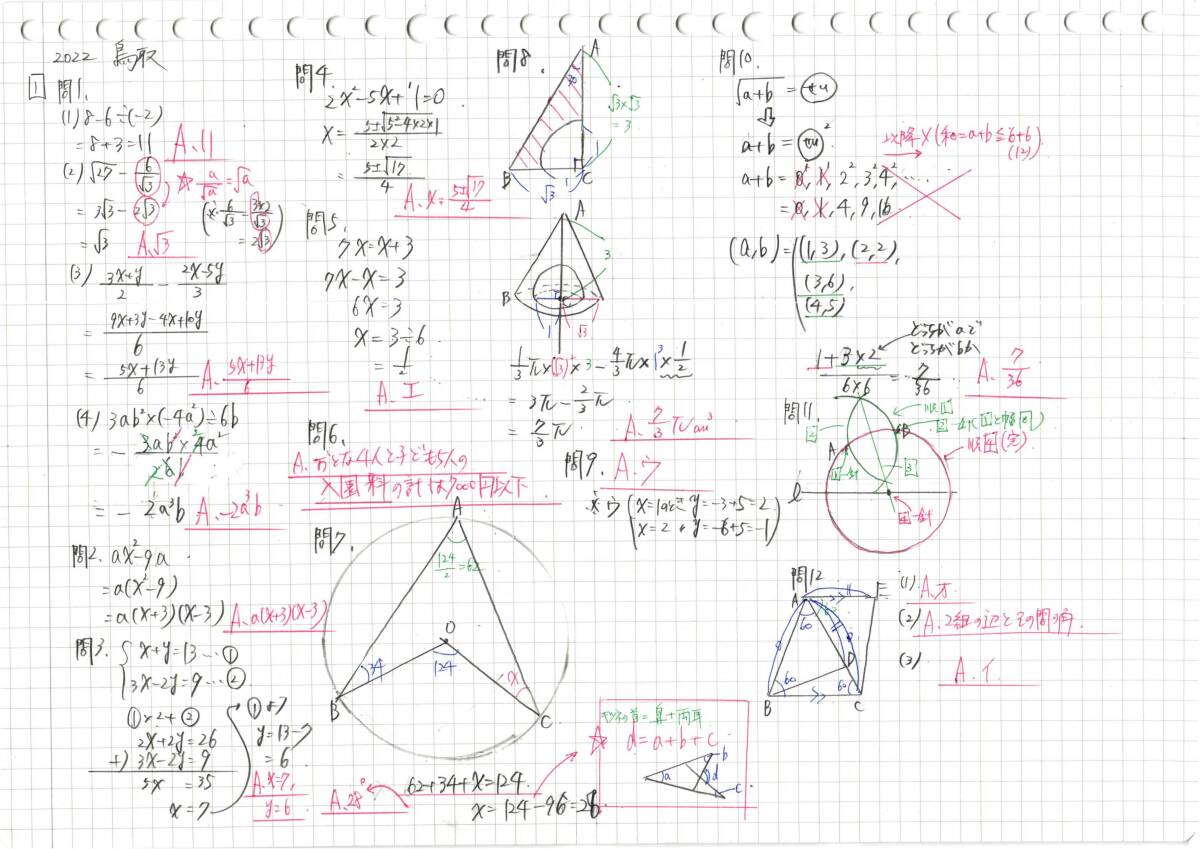 2022 鳥取
1 問1.
(1) 8-6÷(-2)
=8+3=11 A. 11
(2) √27 - 6/√3 ☆ a/√a=√a
= 3√3-2√3 (※ 6/√3=3×2/√3
=√3 A. √3 =2√3)
(3) 3x+y/2 - 2x-5y/3
= 9x+3y-4x+10y/6
= 5x+13y/6 A. 5x+13y/6
(4) 3ab²×(-4a²)÷6b
= - 3ab²×4a²/6b
= -2a³b A. -2a³b
問2. ax²-9a
=a(x²-9)
=a(x+3)(x-3) A. a(x+3)(x-3)
問3. { x+y=13…①
3x-2y=9…②
①×2+②
2x+2y=26
+) 3x-2y=9
5x =35
x=7
①より
y=13-7
=6
A. x=7,
y=6
問4.
2x²-5x+1=0
x= 5±√5²-4×2×1/2×2
= 5±√17/4
A. x=5±√17/4
問5.
7x=x+3
7x-x=3
6x=3
x=3÷6
=1/2
A. エ
問6.
A. おとな4人と子ども5人の
入園料の計は7000円以下
問7.
A
124/2=62
O
34
124
x
B
C
62+34+x=124
x=124-96=28
A. 28°
☆ d=a+b+c
a
b
d
c
問8.
A
30
√3×√3
=3
1
B √3 1 C
A
3
B
1
√3
1/3π×(√3)²×3-4/3π×1³×1/2
=3π-2/3π
=7/3π A. 7/3πcm³
問9. A. ウ
※ウ (x=1のとき y=-3+5=2
x=2 〃 y=-6+5=-1)
問10.
√a+b =
⇓
a+b= ²
以降×(和=a+b≦6+6)
(12)
a+b=0², 1², 2², 3², 4², …
=0, 1, 4, 9, 16
(a,b)= (1,3), (2,2),
(3,6),
(4,5)
どっちがaで
どっちがbか
1+3×2/6×6=7/36 A. 7/36
問11.
順1
2
2
B
A
順4(完)
1
3
ℓ
4
問12
A
E
60
D
60
60
B
C
(1) A. オ
(2) A. 2組の辺とその間の角
(3)
A. イ